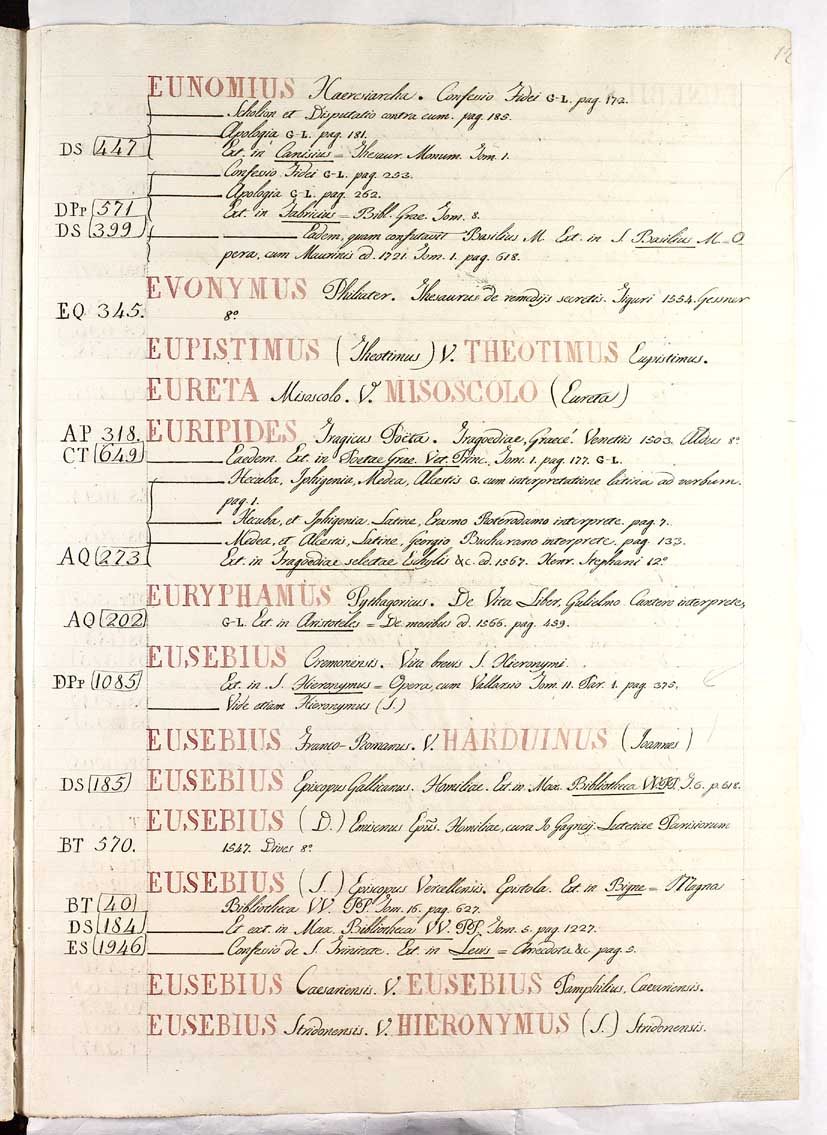 EUNOMIUS Haeresiarcha. Confessio Fidei G-L. pag. 172.
Scholion et Disputatio contra eum. pag. 185.
Apologia G-L. pag. 181.
DS 447 Ext. in Canisius = Thesaur. Monum. Tom. 1.
Confessio Fidei G-L. pag. 253.
Apologia G-L. pag. 262.
DPp 571 Ext. in Fabricius = Bibl. Grae. Tom. 8.
DS 399 Eadem, quam confutavit Basilius M. Ext. in S. Basilius M = O
pera, cum Maurinis ed. 1721. Tom. 1. pag. 618.
EVONYMUS Philiater. Thesaurus de remedijs secretis. Tiguri 1554. Gesner
EQ 345. 8º
EUPISTIMUS (Theotimus) V. THEOTIMUS Eupistimus.
EURETA Misoscolo. V. MISOSCOLO (Eureta)
AP 318. EURIPIDES Tragicus Poëta. Tragoediae, Graecé. Venetiis 1503. Aldus 8º
CT 649 Eaedem. Ext. in Poetae Grae. Vet. Princ. Tom. 1. pag. 177. G-L.
Hecuba, Iphigenia, Medea, Alcestis G. cum interpretatione latina ad verbum.
pag. 1.
Hecuba, et Iphigenia, Latine, Erasmo Roterodamo interprete. pag. 7.
Medea, et Alcestis, Latine, Georgio Buchanano interprete. pag. 133.
AQ 273 Ext. in Tragoediae selectae Eschylis &c. ed. 1567. Henr. Stephani 12º
EURYPHAMUS Pythagoricus. De Vita Liber, Gulielmo Cantero interprete,
AQ 202 G-L. Ext. in Aristoteles = De moribus ed. 1566. pag. 459.
EUSEBIUS Cremonensis. Vita brevis S. Hieronymi.
DPp 1085 Ext. in S. Hieronymus = Opera, cum Vallarsio Tom. 11. Par. 1. pag. 375.
Vide etiam Hieronymus (S.)
EUSEBIUS Franco-Romanus. V. HARDUINUS (Joannes)
DS 185 EUSEBIUS Episcopus Gallicanus. Homiliae. Ext. in Max. Bibliotheca VV. PP. T. 6. p. 618.
EUSEBIUS (D.) Emisenus Epũs. Homiliae, cura Jo Gagneij. Lutetiae Parisiorum
BT 570. 1547. Dives 8º
EUSEBIUS (S.) Episcopus Vercellensis. Epistola. Ext. in Bigne = Magna
BT 40 Bibliotheca VV. PP. Tom. 15. pag. 627.
DS 184 Et ext. in Max. Bibliotheca VV. PP. Tom. 5. pag. 1227.
ES 1946 Confessio de S. Trinitate. Ext. in Lewis = Anecdota &c. pag. 5.
EUSEBIUS Caesariensis. V. EUSEBIUS Pamphilius, Caesariensis.
EUSEBIUS Stridonensis. V. HIERONYMUS (S.) Stridonensis.